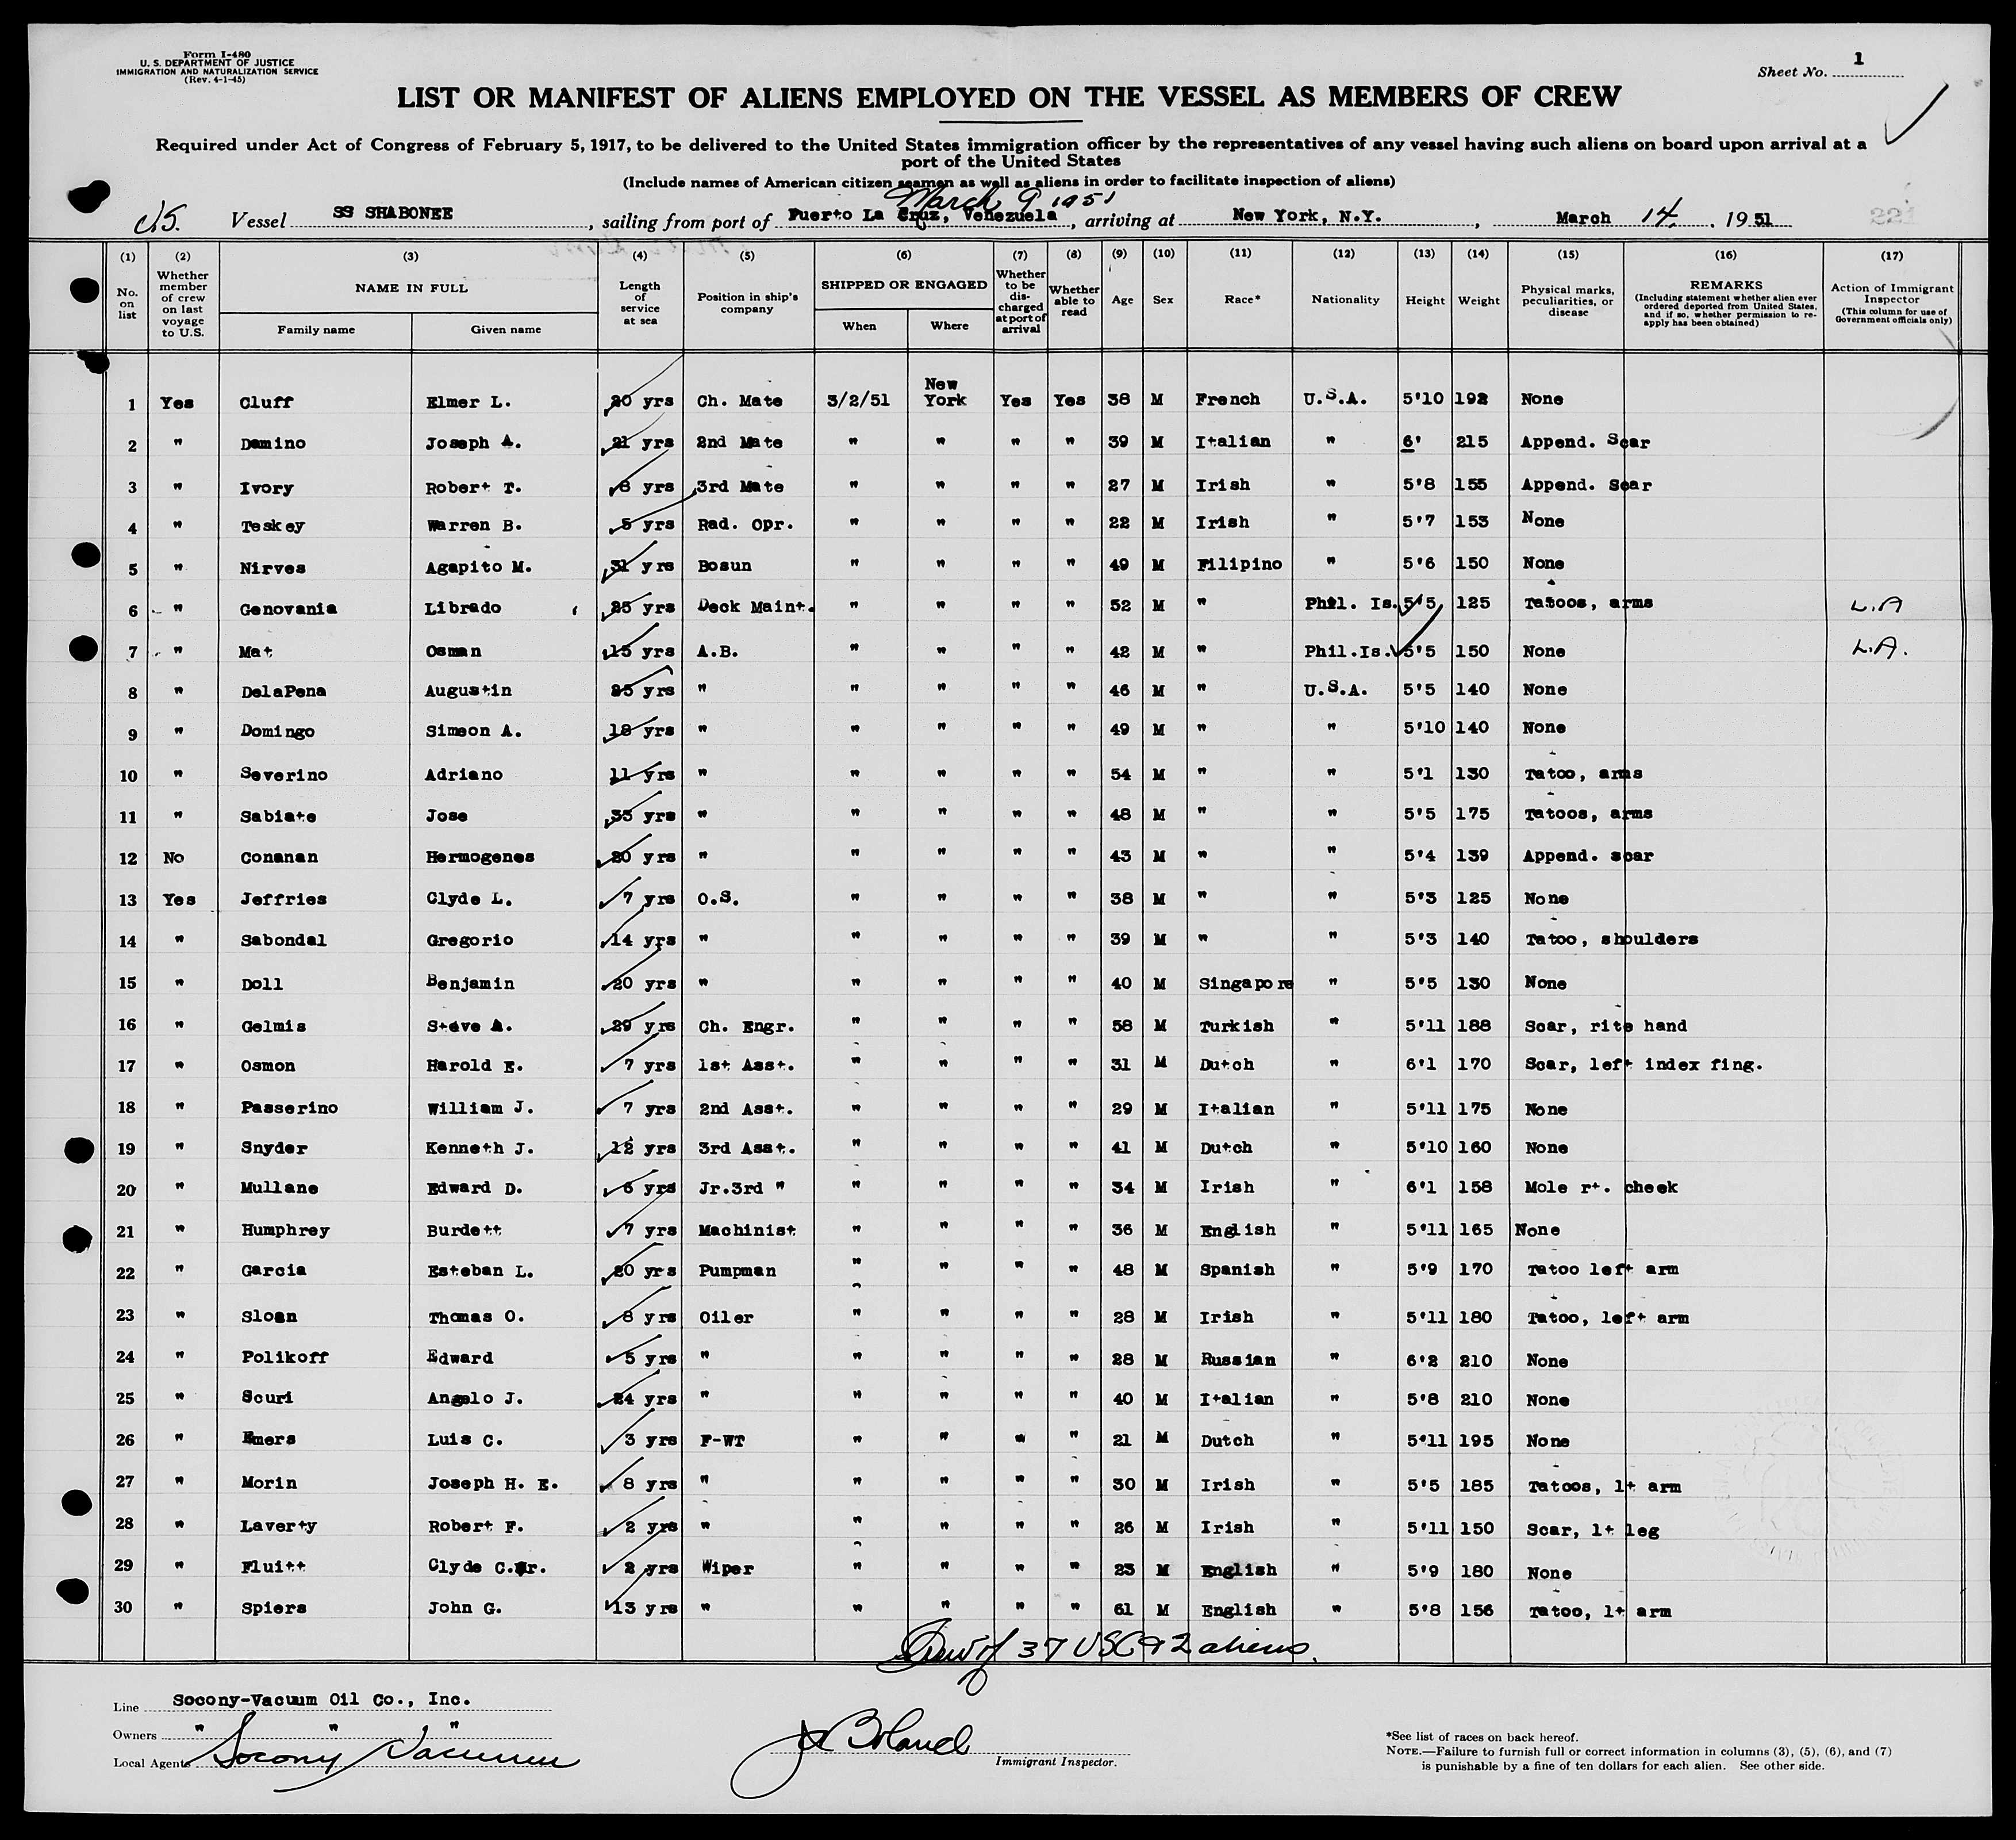 Form I-480
U. S. DEPARTMENT OF JUSTICE
IMMIGRATION AND NATURALIZATION SERVICE
(Rev. 4-1-45)
Sheet No. 1
LIST OR MANIFEST OF ALIENS EMPLOYED ON THE VESSEL AS MEMBERS OF CREW
Required under Act of Congress of February 5, 1917, to be delivered to the United States immigration officer by the representatives of any vessel having such aliens on board upon arrival at a
port of the United States
(Include names of American citizen seamen as well as aliens in order to facilitate inspection of aliens)
March 9 1951
US. Vessel SS SHABONEE, sailing from port of Puerto La Cruz, Venezuela, arriving at New York, N.Y., March 14, 1951
(1) (2) (3) (4) (5) (6) (7) (8) (9) (10) (11) (12) (13) (14) (15) (16) (17)
No. on list
Whether member of crew on last voyage to U.S.
NAME IN FULL
Family name Given name
Length of service at sea
Position in ship's company
SHIPPED OR ENGAGED
When Where
Whether to be discharged at port of arrival
Whether able to read
Age Sex Race* Nationality Height Weight
Physical marks, peculiarities, or disease
REMARKS
(Including statement whether alien ever ordered deported from United States, and if so, whether permission to reapply has been obtained)
Action of Immigrant Inspector
(This column for use of Government officials only)
1 Yes Cluff Elmer L. 20 yrs Ch. Mate 3/2/51 New York Yes Yes 38 M French U.S.A. 5'10 192 None
2 " Damino Joseph A. 21 yrs 2nd Mate " " " " 39 M Italian " 6' 215 Append. Scar
3 " Ivory Robert T. 8 yrs 3rd Mate " " " " 27 M Irish " 5'8 155 Append. Scar
4 " Teskey Warren B. 5 yrs Rad. Opr. " " " " 22 M Irish " 5'7 153 None
5 " Nirves Agapito M. 31 yrs Bosun " " " " 49 M Filipino " 5'6 150 None
6 " Genovania Librado 25 yrs Deck Maint. " " " " 52 M " Phil. Is. 5'5 125 Tatoos, arms L.A
7 " Mat Osman 15 yrs A.B. " " " " 42 M " Phil.Is. 5'5 150 None L.A.
8 " DelaPena Augustin 25 yrs " " " " " 46 M " U.S.A. 5'5 140 None
9 " Domingo Simeon A. 18 yrs " " " " " 49 M " " 5'10 140 None
10 " Severino Adriano 11 yrs " " " " " 54 M " " 5'1 130 Tatoo, arms
11 " Sabiate Jose 33 yrs " " " " " 48 M " " 5'5 175 Tatoos, arms
12 No Conanan Hermogenes 20 yrs " " " " " 43 M " " 5'4 139 Append. scar
13 Yes Jeffries Clyde L. 7 yrs O.S. " " " " 38 M " " 5'3 125 None
14 " Sabondal Gregorio 14 yrs " " " " " 39 M " " 5'3 140 Tatoo, shoulders
15 " Doll Benjamin 20 yrs " " " " " 40 M Singapore " 5'5 130 None
16 " Gelmis Steve A. 29 yrs Ch. Engr. " " " " 58 M Turkish " 5'11 188 Scar, rite hand
17 " Osmon Harold E. 7 yrs 1st Asst. " " " " 31 M Dutch " 6'1 170 Scar, left index fing.
18 " Passerino William J. 7 yrs 2nd Asst. " " " " 29 M Italian " 5'11 175 None
19 " Snyder Kenneth J. 12 yrs 3rd Asst. " " " " 41 M Dutch " 5'10 160 None
20 " Mullane Edward D. 6 yrs Jr.3rd " " " " " 34 M Irish " 6'1 158 Mole rt. cheek
21 " Humphrey Burdett 7 yrs Machinist " " " " 36 M English " 5'11 165 None
22 " Garcia Esteban L. 20 yrs Pumpman " " " " 48 M Spanish " 5'9 170 Tatoo left arm
23 " Sloan Thomas O. 8 yrs Oiler " " " " 28 M Irish " 5'11 180 Tatoo, left arm
24 " Polikoff Edward 5 yrs " " " " " 28 M Russian " 6'2 210 None
25 " Scuri Angelo J. 24 yrs " " " " " 40 M Italian " 5'8 210 None
26 " Emers Luis C. 3 yrs F-WT " " " " 21 M Dutch " 5'11 195 None
27 " Morin Joseph H. E. 8 yrs " " " " " 30 M Irish " 5'5 185 Tatoos, lt arm
28 " Laverty Robert F. 2 yrs " " " " " 26 M Irish " 5'11 150 Scar, lt leg
29 " Fluitt Clyde C.Jr. 2 yrs Wiper " " " " 23 M English " 5'9 180 None
30 " Spiers John G. 13 yrs " " " " " 61 M English " 5'8 156 Tatoo, lt arm
Crew of 37 USC 92 aliens.
Line Socony-Vacuum Oil Co., Inc.
Owners " " "
Local Agents Socony Vacuum
Immigrant Inspector.
*See list of races on back hereof.
NOTE.—Failure to furnish full or correct information in columns (3), (5), (6), and (7)
is punishable by a fine of ten dollars for each alien. See other side.